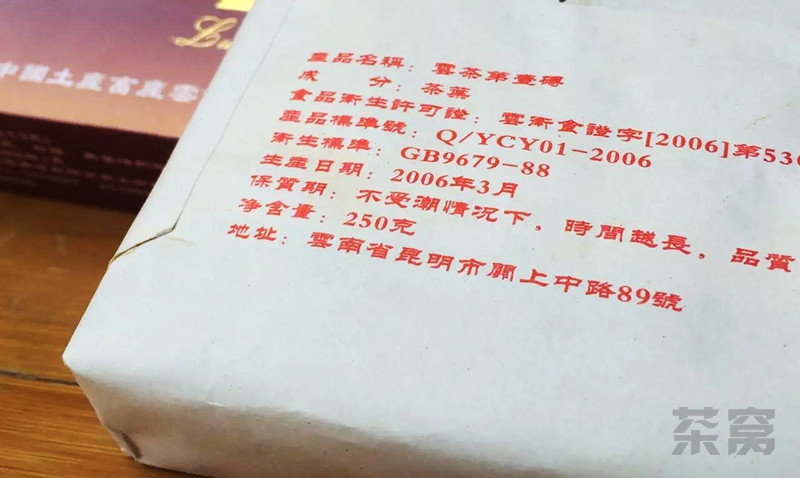 中國土產畜產雲
產品名稱：雲茶第壹磚
成　　分：茶葉
食品衛生許可證：雲衛食證字[2006]第530
產品標準號：Q/YCY01-2006
衛生標準：GB9679-88
生産日期：2006年3月
保質期：不受潮情况下，時間越長，品質
净含量：250克
地址：雲南省昆明市關上中路89號
茶窝